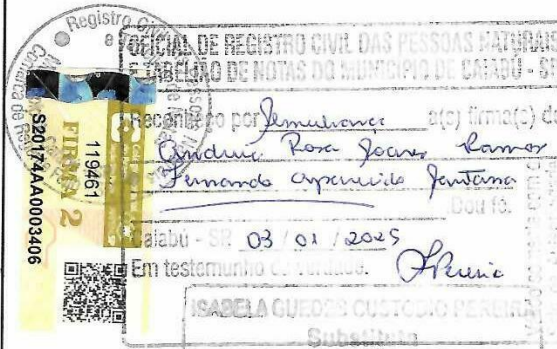 Registro Civil
OFICIAL DE REGISTRO CIVIL DAS PESSOAS NATURAIS
E TABELIÃO DE NOTAS DO MUNICÍPIO DE CAIABÚ - SP
Reconheço por Semelhança a(s) firma(s) de
Rosa Soares Ramos
Fernando Aparecido Santana
Dou fé.
Caiabú - SP. 03 / 01 / 2025
Em testemunho da verdade.
ISABELA GUEDES CUSTODIO PEREIRA
Substituta
FIRMA 2
119461
S20174AA0003406